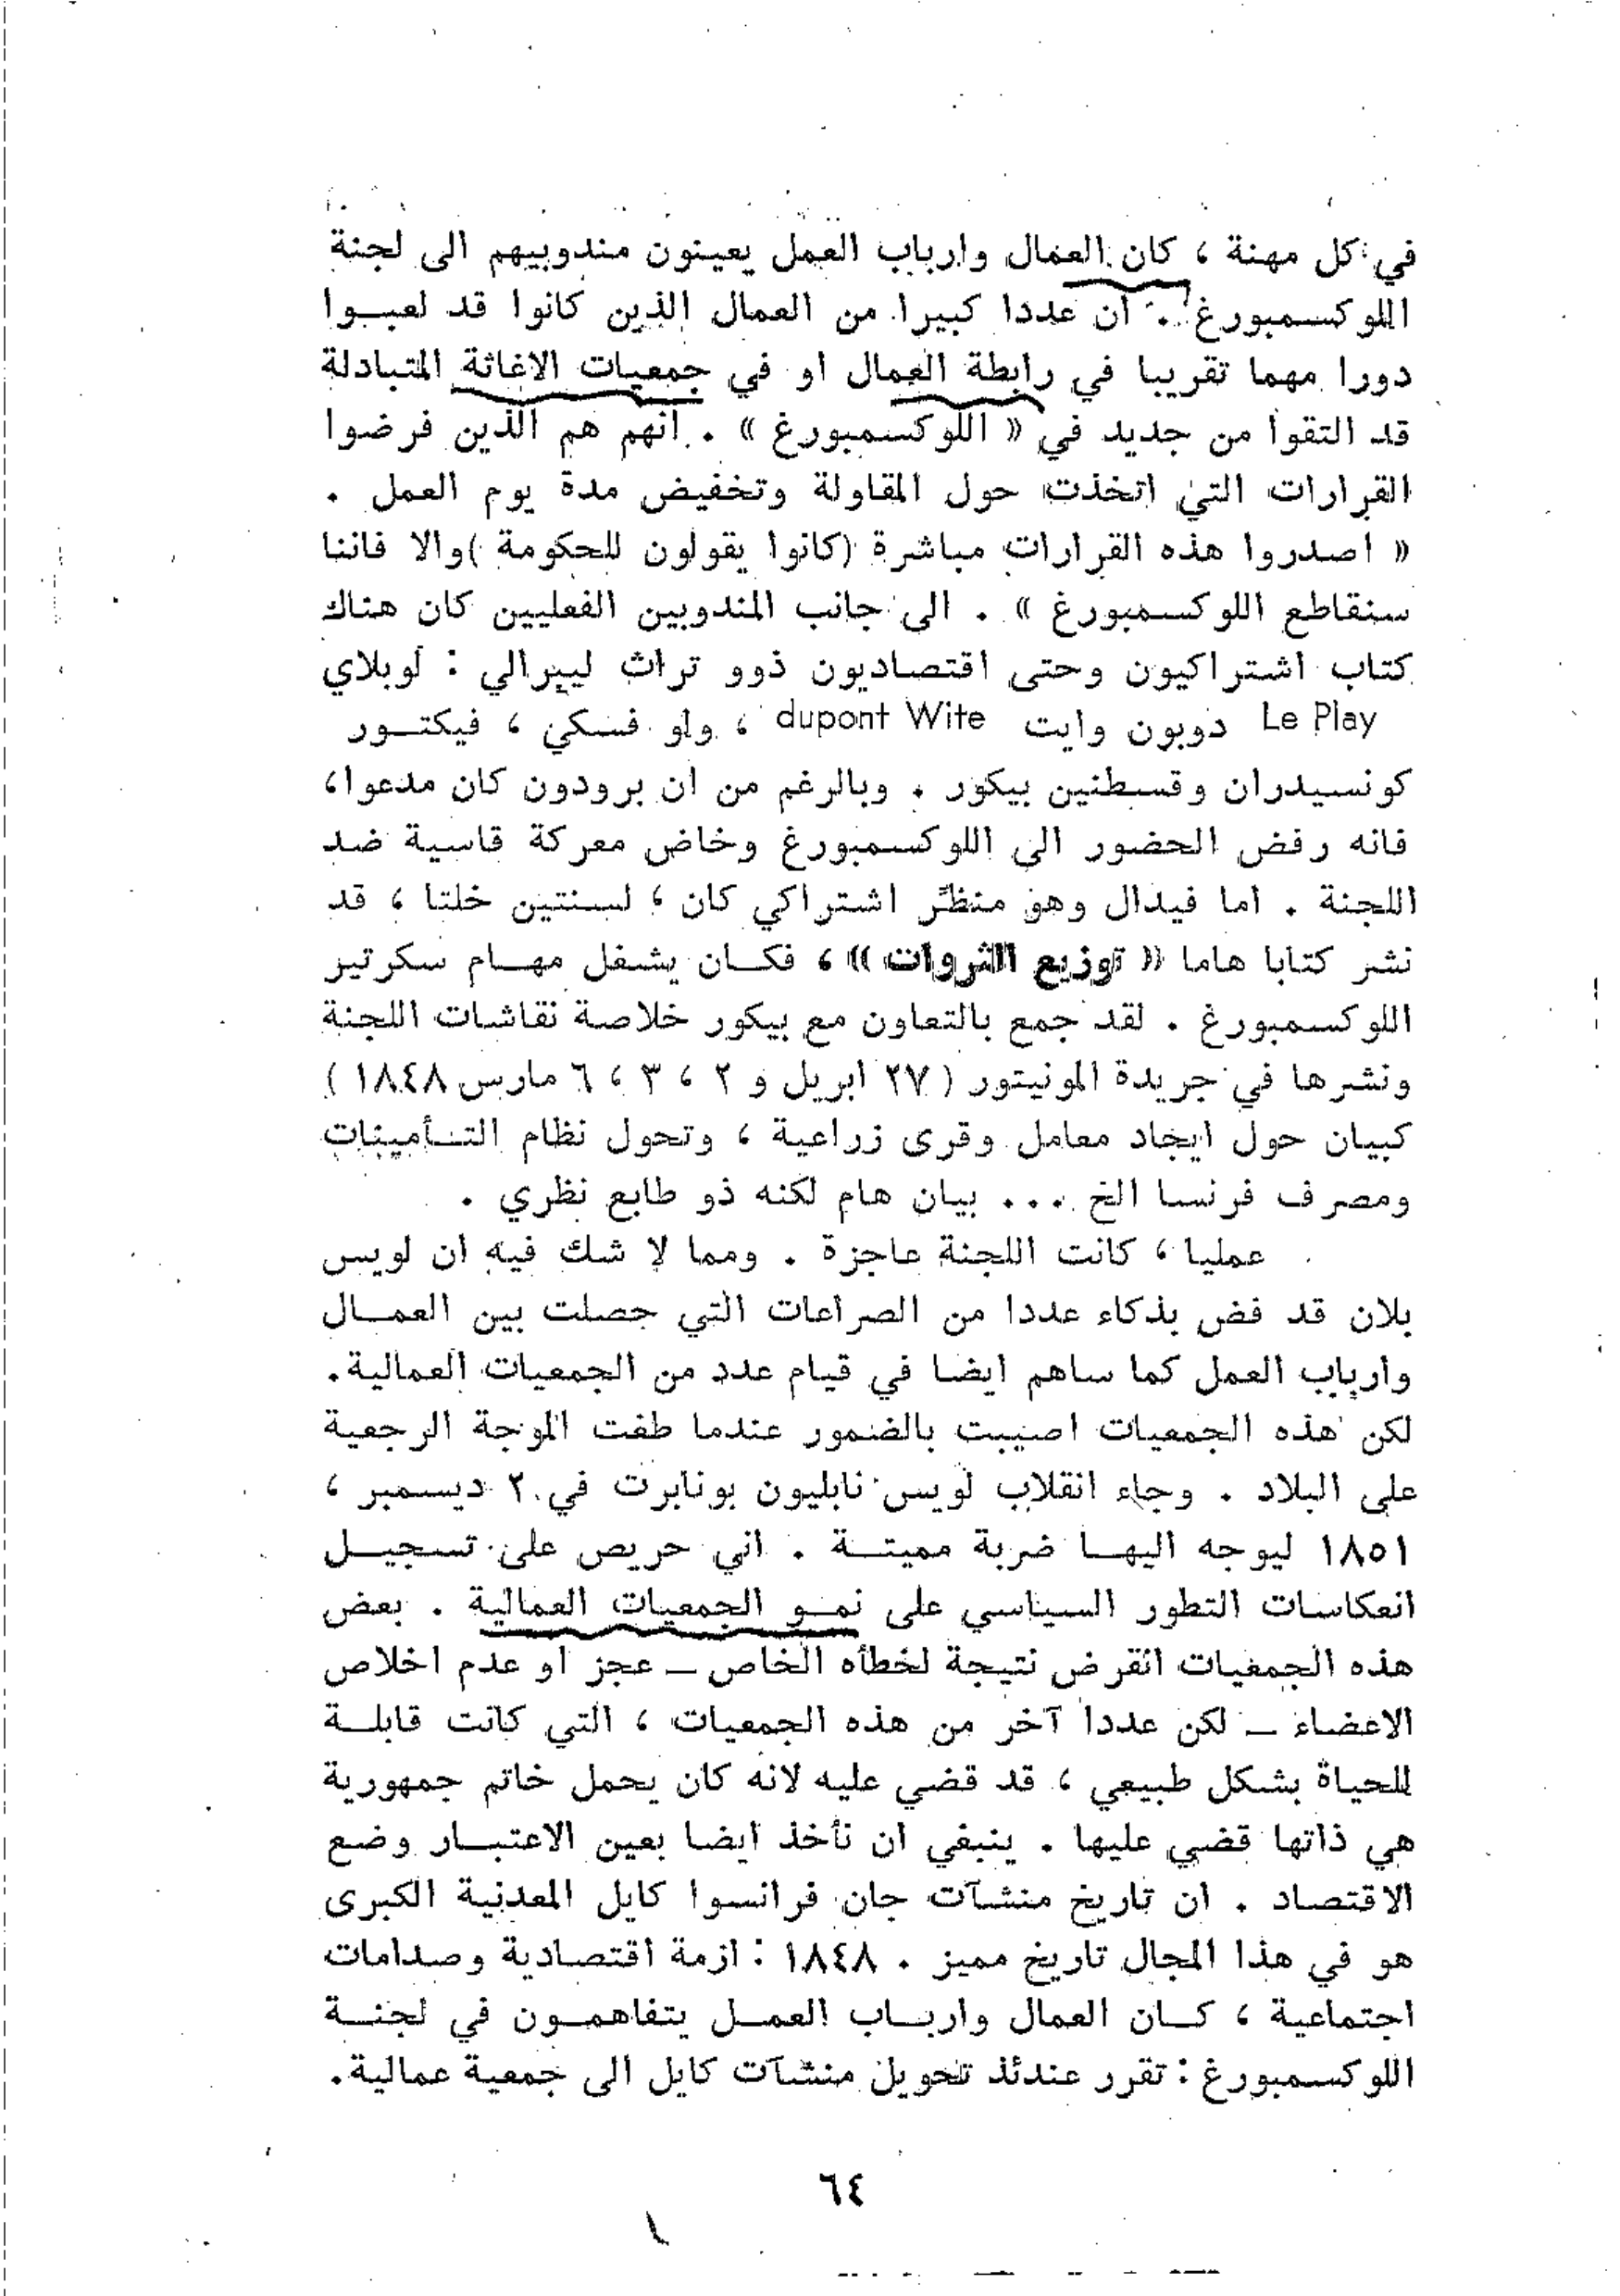 في كل مهنة ، كان العمال وارباب العمل يعينون مندوبيهم الى لجنة
اللوكسمبورغ . ان عددا كبيرا من العمال الذين كانوا قد لعبوا
دورا مهما تقريبا في رابطة العمال او في جمعيات الاغاثة المتبادلة
قد التقوا من جديد في « اللوكسمبورغ » . انهم هم الذين فرضوا
القرارات التي اتخذت حول المقاولة وتخفيض مدة يوم العمل .
« اصدروا هذه القرارات مباشرة (كانوا يقولون للحكومة )والا فاننا
سنقاطع اللوكسمبورغ » . الى جانب المندوبين الفعليين كان هناك
كتاب اشتراكيون وحتى اقتصاديون ذوو تراث ليبرالي : لوبلاي
Le Play دوبون وايت dupont Wite ، ولو فسكي ، فيكتور
كونسيدران وقسطنين بيكور . وبالرغم من ان برودون كان مدعوا،
فانه رفض الحضور الى اللوكسمبورغ وخاض معركة قاسية ضد
اللجنة . اما فيدال وهو منظّر اشتراكي كان ، لسنتين خلتا ، قد
نشر كتابا هاما « توزيع الثروات » ، فكان يشغل مهام سكرتير
اللوكسمبورغ . لقد جمع بالتعاون مع بيكور خلاصة نقاشات اللجنة
ونشرها في جريدة المونيتور ( ٢٧ ابريل و ٢ ، ٣ ، ٦ مارس ١٨٤٨ )
كبيان حول ايجاد معامل وقرى زراعية ، وتحول نظام التأمينات
ومصرف فرنسا الخ ... بيان هام لكنه ذو طابع نظري .
عمليا ، كانت اللجنة عاجزة . ومما لا شك فيه ان لويس
بلان قد فض بذكاء عددا من الصراعات التي حصلت بين العمال
وارباب العمل كما ساهم ايضا في قيام عدد من الجمعيات العمالية.
لكن هذه الجمعيات اصيبت بالضمور عندما طغت الموجة الرجعية
على البلاد . وجاء انقلاب لويس نابليون بونابرت في ٢ ديسمبر ،
١٨٥١ ليوجه اليها ضربة مميتة . اني حريص على تسجيل
انعكاسات التطور السياسي على نمو الجمعيات العمالية . بعض
هذه الجمعيات انقرض نتيجة لخطأه الخاص ــ عجز او عدم اخلاص
الاعضاء ــ لكن عددا آخر من هذه الجمعيات ، التي كانت قابلة
للحياة بشكل طبيعي ، قد قضي عليه لانه كان يحمل خاتم جمهورية
هي ذاتها قضي عليها . ينبغي ان نأخذ ايضا بعين الاعتبار وضع
الاقتصاد . ان تاريخ منشآت جان فرانسوا كايل المعدنية الكبرى
هو في هذا المجال تاريخ مميز . ١٨٤٨ : ازمة اقتصادية وصدامات
اجتماعية ، كان العمال وارباب العمل يتفاهمون في لجنة
اللوكسمبورغ : تقرر عندئذ تحويل منشآت كايل الى جمعية عمالية.
٦٤